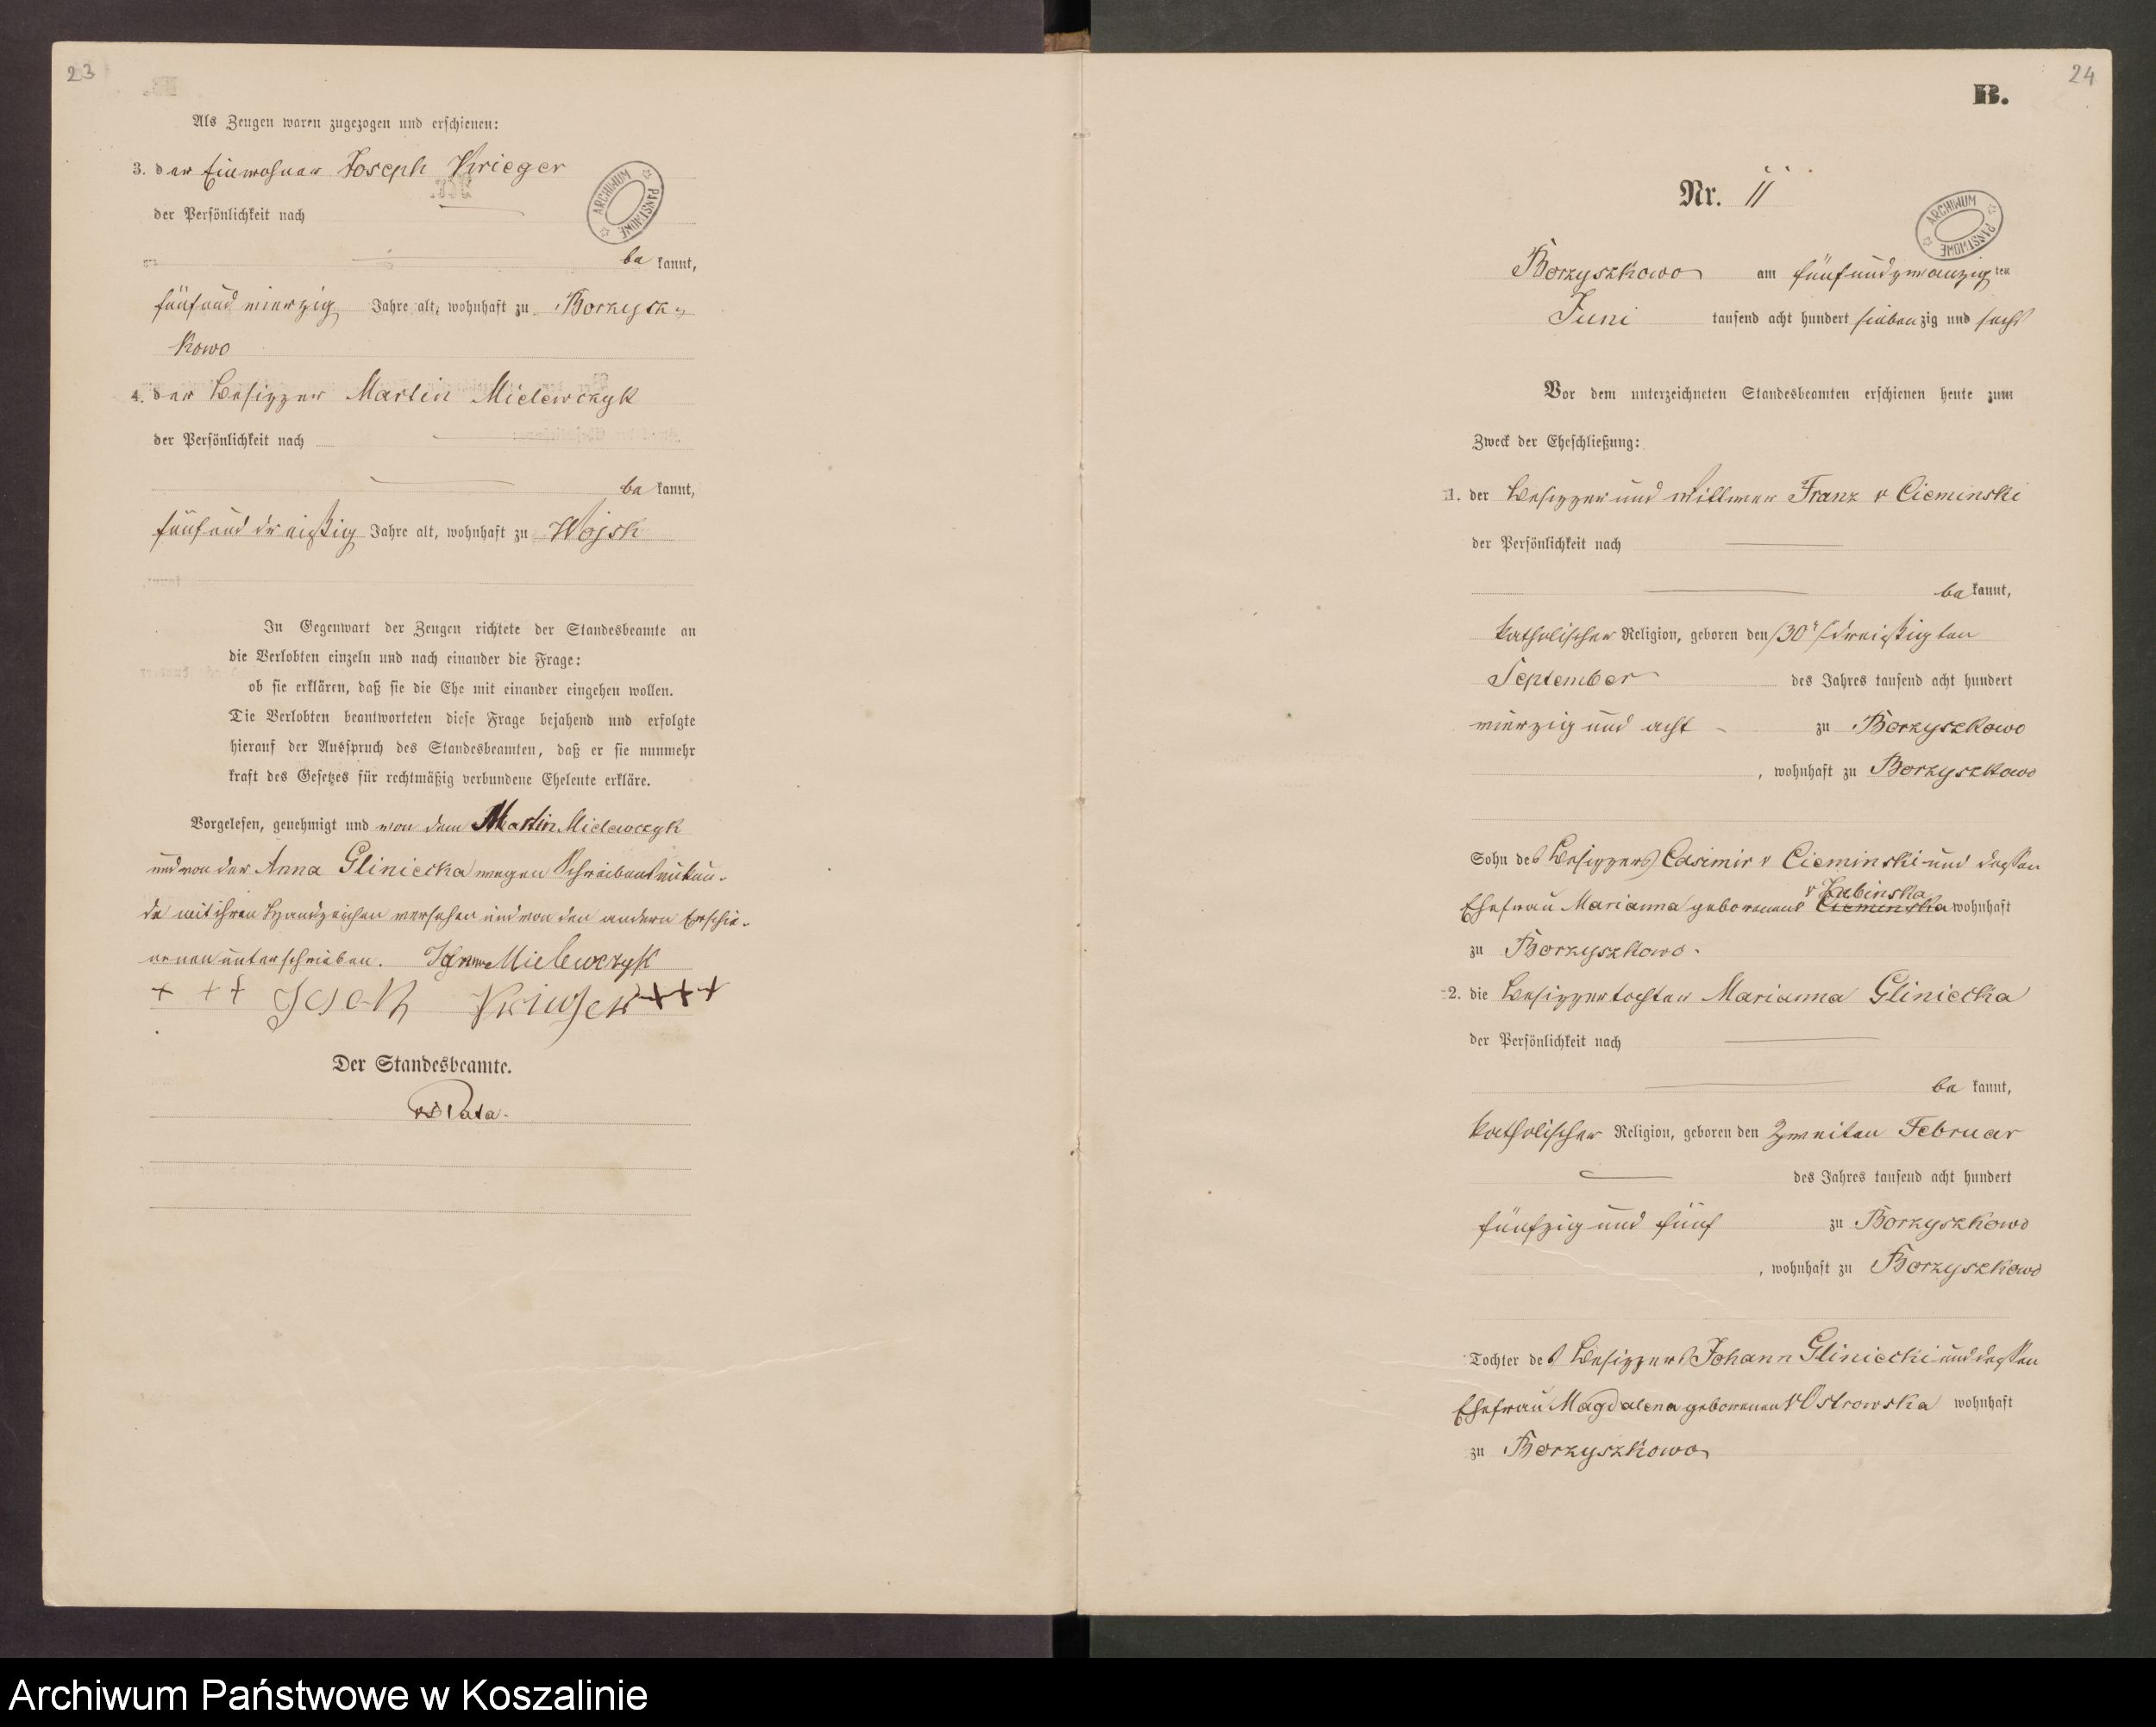 23
Als Zeugen waren zugezogen und erschienen:
3. der Einwohner Joseph Krieger
ARCHIWUM PAŃSTWOWE
der Persönlichkeit nach
be kannt,
fünfund vierzig Jahre alt, wohnhaft zu Borzysz-
kowo
4. der Besizzer Martin Mielewczyk
der Persönlichkeit nach
be kannt,
fünfund dreißig Jahre alt, wohnhaft zu Wojsk
In Gegenwart der Zeugen richtete der Standesbeamte an
die Verlobten einzeln und nach einander die Frage:
ob sie erklären, daß sie die Ehe mit einander eingehen wollen.
Die Verlobten beantworteten diese Frage bejahend und erfolgte
hierauf der Ausspruch des Standesbeamten, daß er sie nunmehr
kraft des Gesetzes für rechtmäßig verbundene Eheleute erkläre.
Vorgelesen, genehmigt und von dem Martin Mielewczyk
und von der Anna Gliniecka wegen Schreibensunkun-
de mit ihren Handzeichen versehen und von den andern Erschie-
nenen unterschrieben. Mielewczyk
+ ++ +++
Der Standesbeamte.
24
B.
Nr. 11
ARCHIWUM PAŃSTWOWE
Borzyszkowo am fünfundzwanzig ten
Juni tausend acht hundert siebenzig und sechs
Vor dem unterzeichneten Standesbeamten erschienen heute zum
Zweck der Eheschließung:
1. der Besizzer und Wittwer Franz v Cieminski
der Persönlichkeit nach
be kannt,
katholischer Religion, geboren den /30t/ dreißigten
September des Jahres tausend acht hundert
vierzig und acht zu Borzyszkowo
, wohnhaft zu Borzyszkowo
Sohn des Besizzers Casimir v Cieminski und dessen
v Lubinska
Ehefrau Marianna geborenene Cieminska wohnhaft
zu Borzyszkowo.
2. die Besizzertochter Marianna Gliniecka
der Persönlichkeit nach
be kannt,
katholischer Religion, geboren den zweiten Februar
des Jahres tausend acht hundert
fünfzig und fünf zu Borzyszkowo
, wohnhaft zu Borzyszkowo
Tochter des Besizzers Johann Gliniecki und dessen
Ehefrau Magdalena geborenen v Ostrowska wohnhaft
zu Borzyszkowo
Archiwum Państwowe w Koszalinie